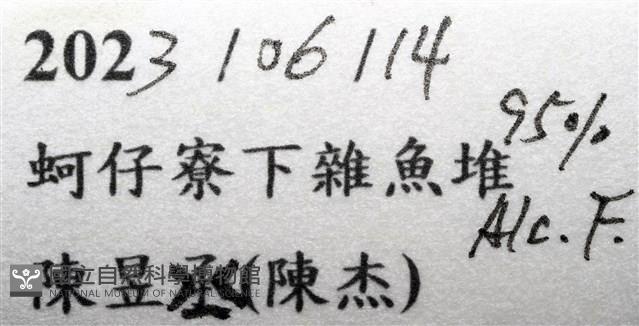 2023/06/14
95%
蚵仔寮下雜魚堆
Alc. F.
陳昱丞(陳杰)
國立自然科學博物館
NATIONAL MUSEUM OF NATURAL SCIENCE